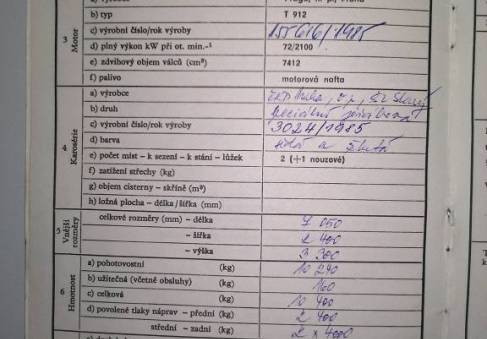 3 Motor
b) typ T 912
c) výrobní číslo/rok výroby 155616/1985
d) plný výkon kW při ot. min.-¹ 72/2100
e) zdvihový objem válců (cm³) 7412
f) palivo motorová nafta
4 Karosérie
a) výrobce
b) druh speciální
c) výrobní číslo/rok výroby 3024/1985
d) barva a žlutá
e) počet míst – k sezení – k stání – lůžek 2 (+1 nouzové)
f) zatížení střechy (kg)
g) objem cisterny – skříně (m³)
h) ložná plocha – délka/šířka (mm)
5 Vnější rozměry
celkové rozměry (mm) – délka 7 050
– šířka 2 400
– výška 3 300
6 Hmotnost
a) pohotovostní (kg) 10 240
b) užitečná (včetně obsluhy) (kg) 160
c) celková (kg) 10 400
d) povolené tlaky náprav – přední (kg) 2 400
střední – zadní (kg) 2 x 4000